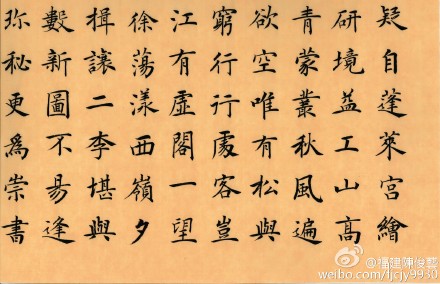 疑自蓬萊宮繪
研境益工山高
青蒙叢秋風遍
欲空唯有松與
窮行行處客豈
江有虛閣一望
徐蕩漾西嶺夕
揖讓二李堪與
數新圖不易逢
珎秘更爲崇書
@福建陳俊藝
weibo.com/fjcjy9930